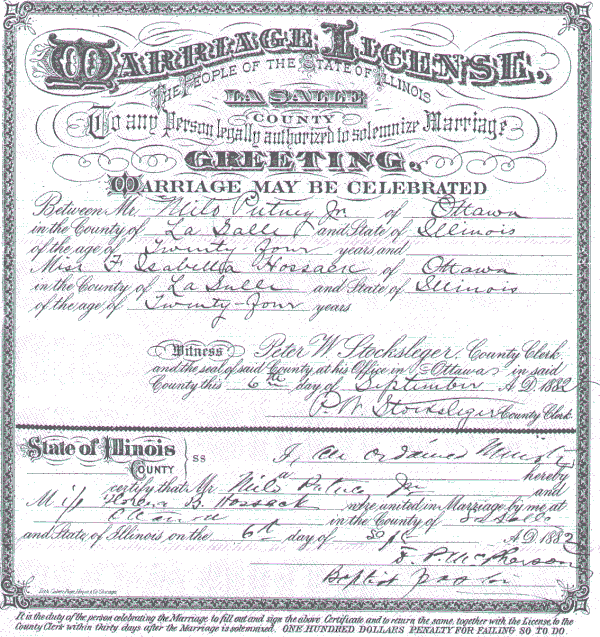 MARRIAGE LICENSE.
THE PEOPLE OF THE STATE OF ILLINOIS
LA SALLE
COUNTY
To any Person legally authorized to solemnize Marriage
GREETING.
MARRIAGE MAY BE CELEBRATED
Between Mr. Milo Putney Jr of Ottawa
in the County of La Salle and State of Illinois
of the age of Twenty Four years and
Miss F. Isabella Hossack of Ottawa
in the County of La Salle and State of Illinois
of the age of Twenty-Four years
Witness Peter W Stocksleger, County Clerk
and the seal of said County, at his Office in Ottawa in said
County this 6th day of September A.D. 1882
P. W. Stocksleger County Clerk
State of Illinois
COUNTY
SS
I, an ordained Minister
hereby
certify that Mr. Milo Putney Jr and
Miss Hossack were united in Marriage by me at
Ottawa in the County of La Salle
and State of Illinois on the 6th day of Sept A.D. 1882
P. McPherson
Baptist Pastor
It is the duty of the person celebrating the Marriage to fill out and sign the above Certificate and to return the same, together with the License, to the
County Clerk within thirty days after the Marriage is solemnized. ONE HUNDRED DOLLARS PENALTY FOR FAILING SO TO DO.